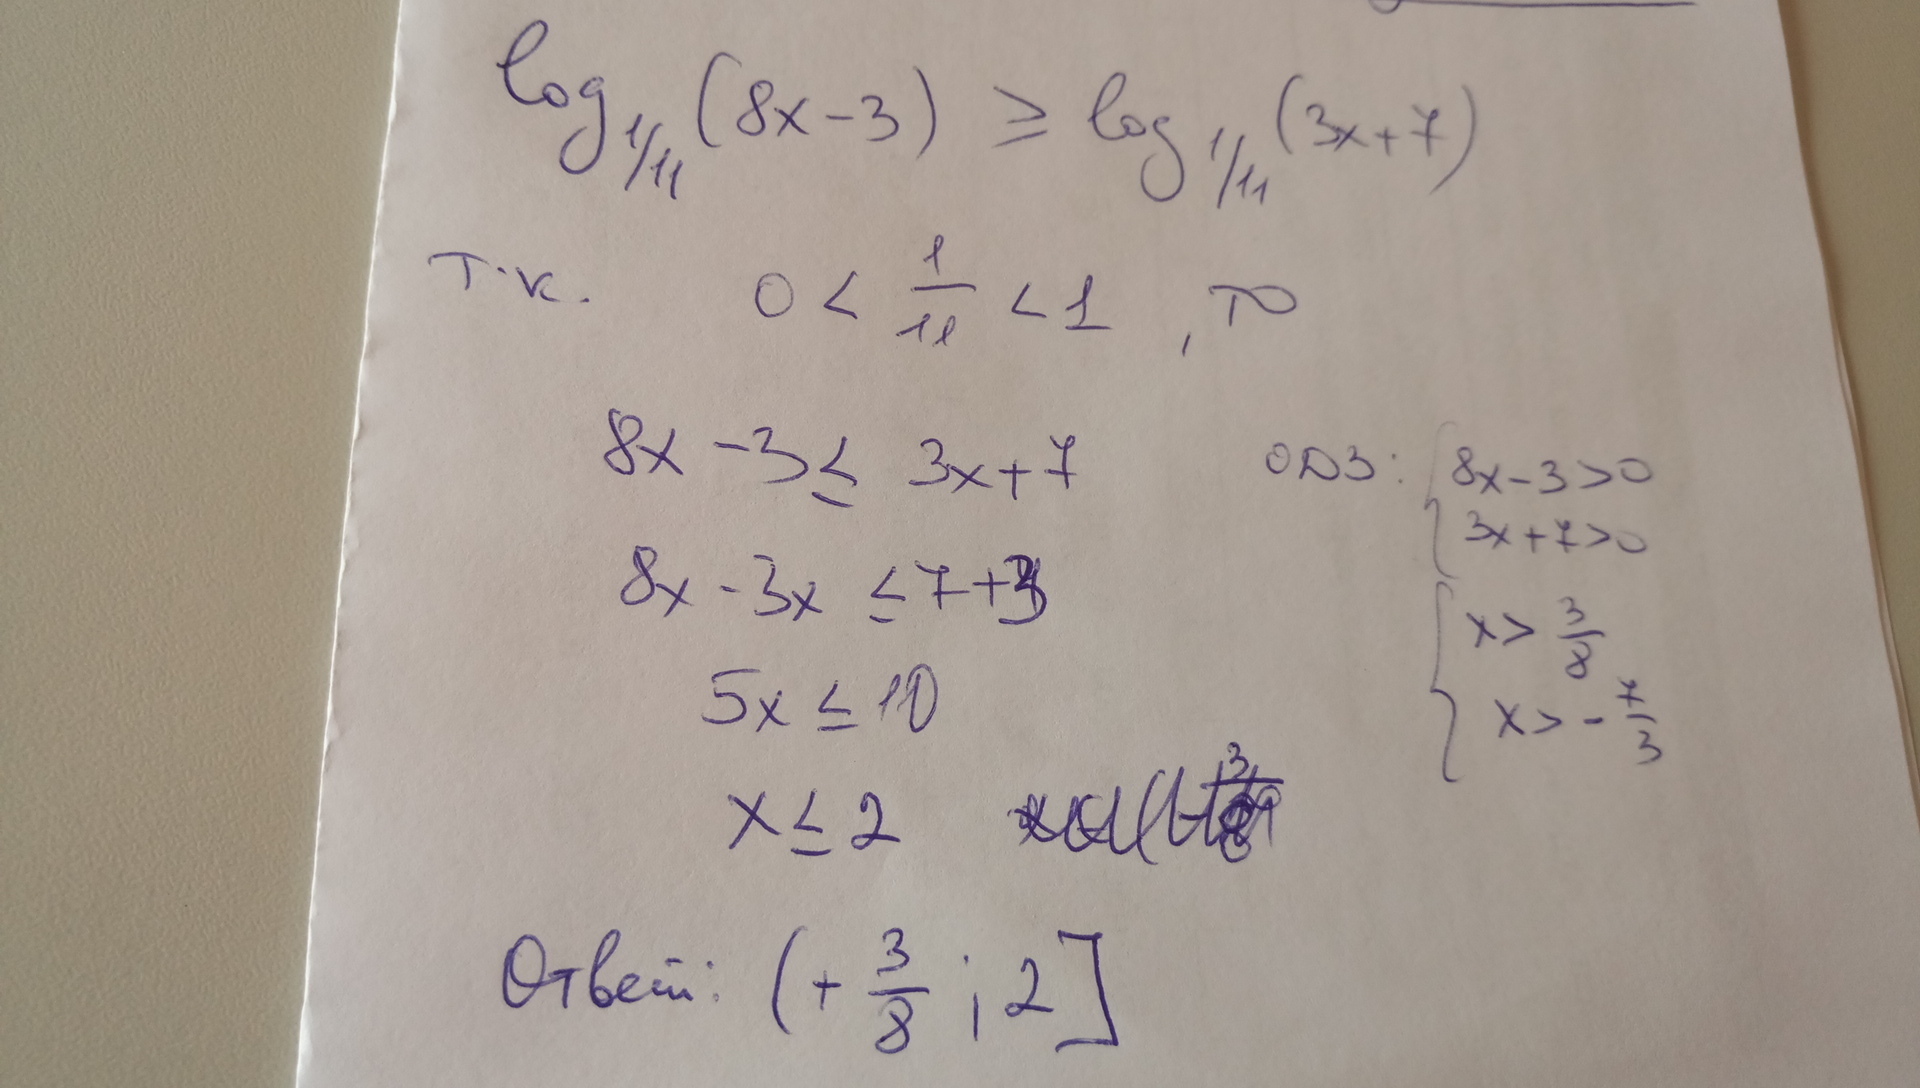 log 1/11 (8x-3) ≥ log 1/11 (3x+7)
т.к. 0 < 1/11 < 1, то
8x - 3 ≤ 3x+7
8x - 3x ≤ 7+3
5x ≤ 10
x ≤ 2
ОДЗ: { 8x-3>0
3x+7>0
{ x > 3/8
x > - 7/3
Ответ: (+ 3/8 ; 2]